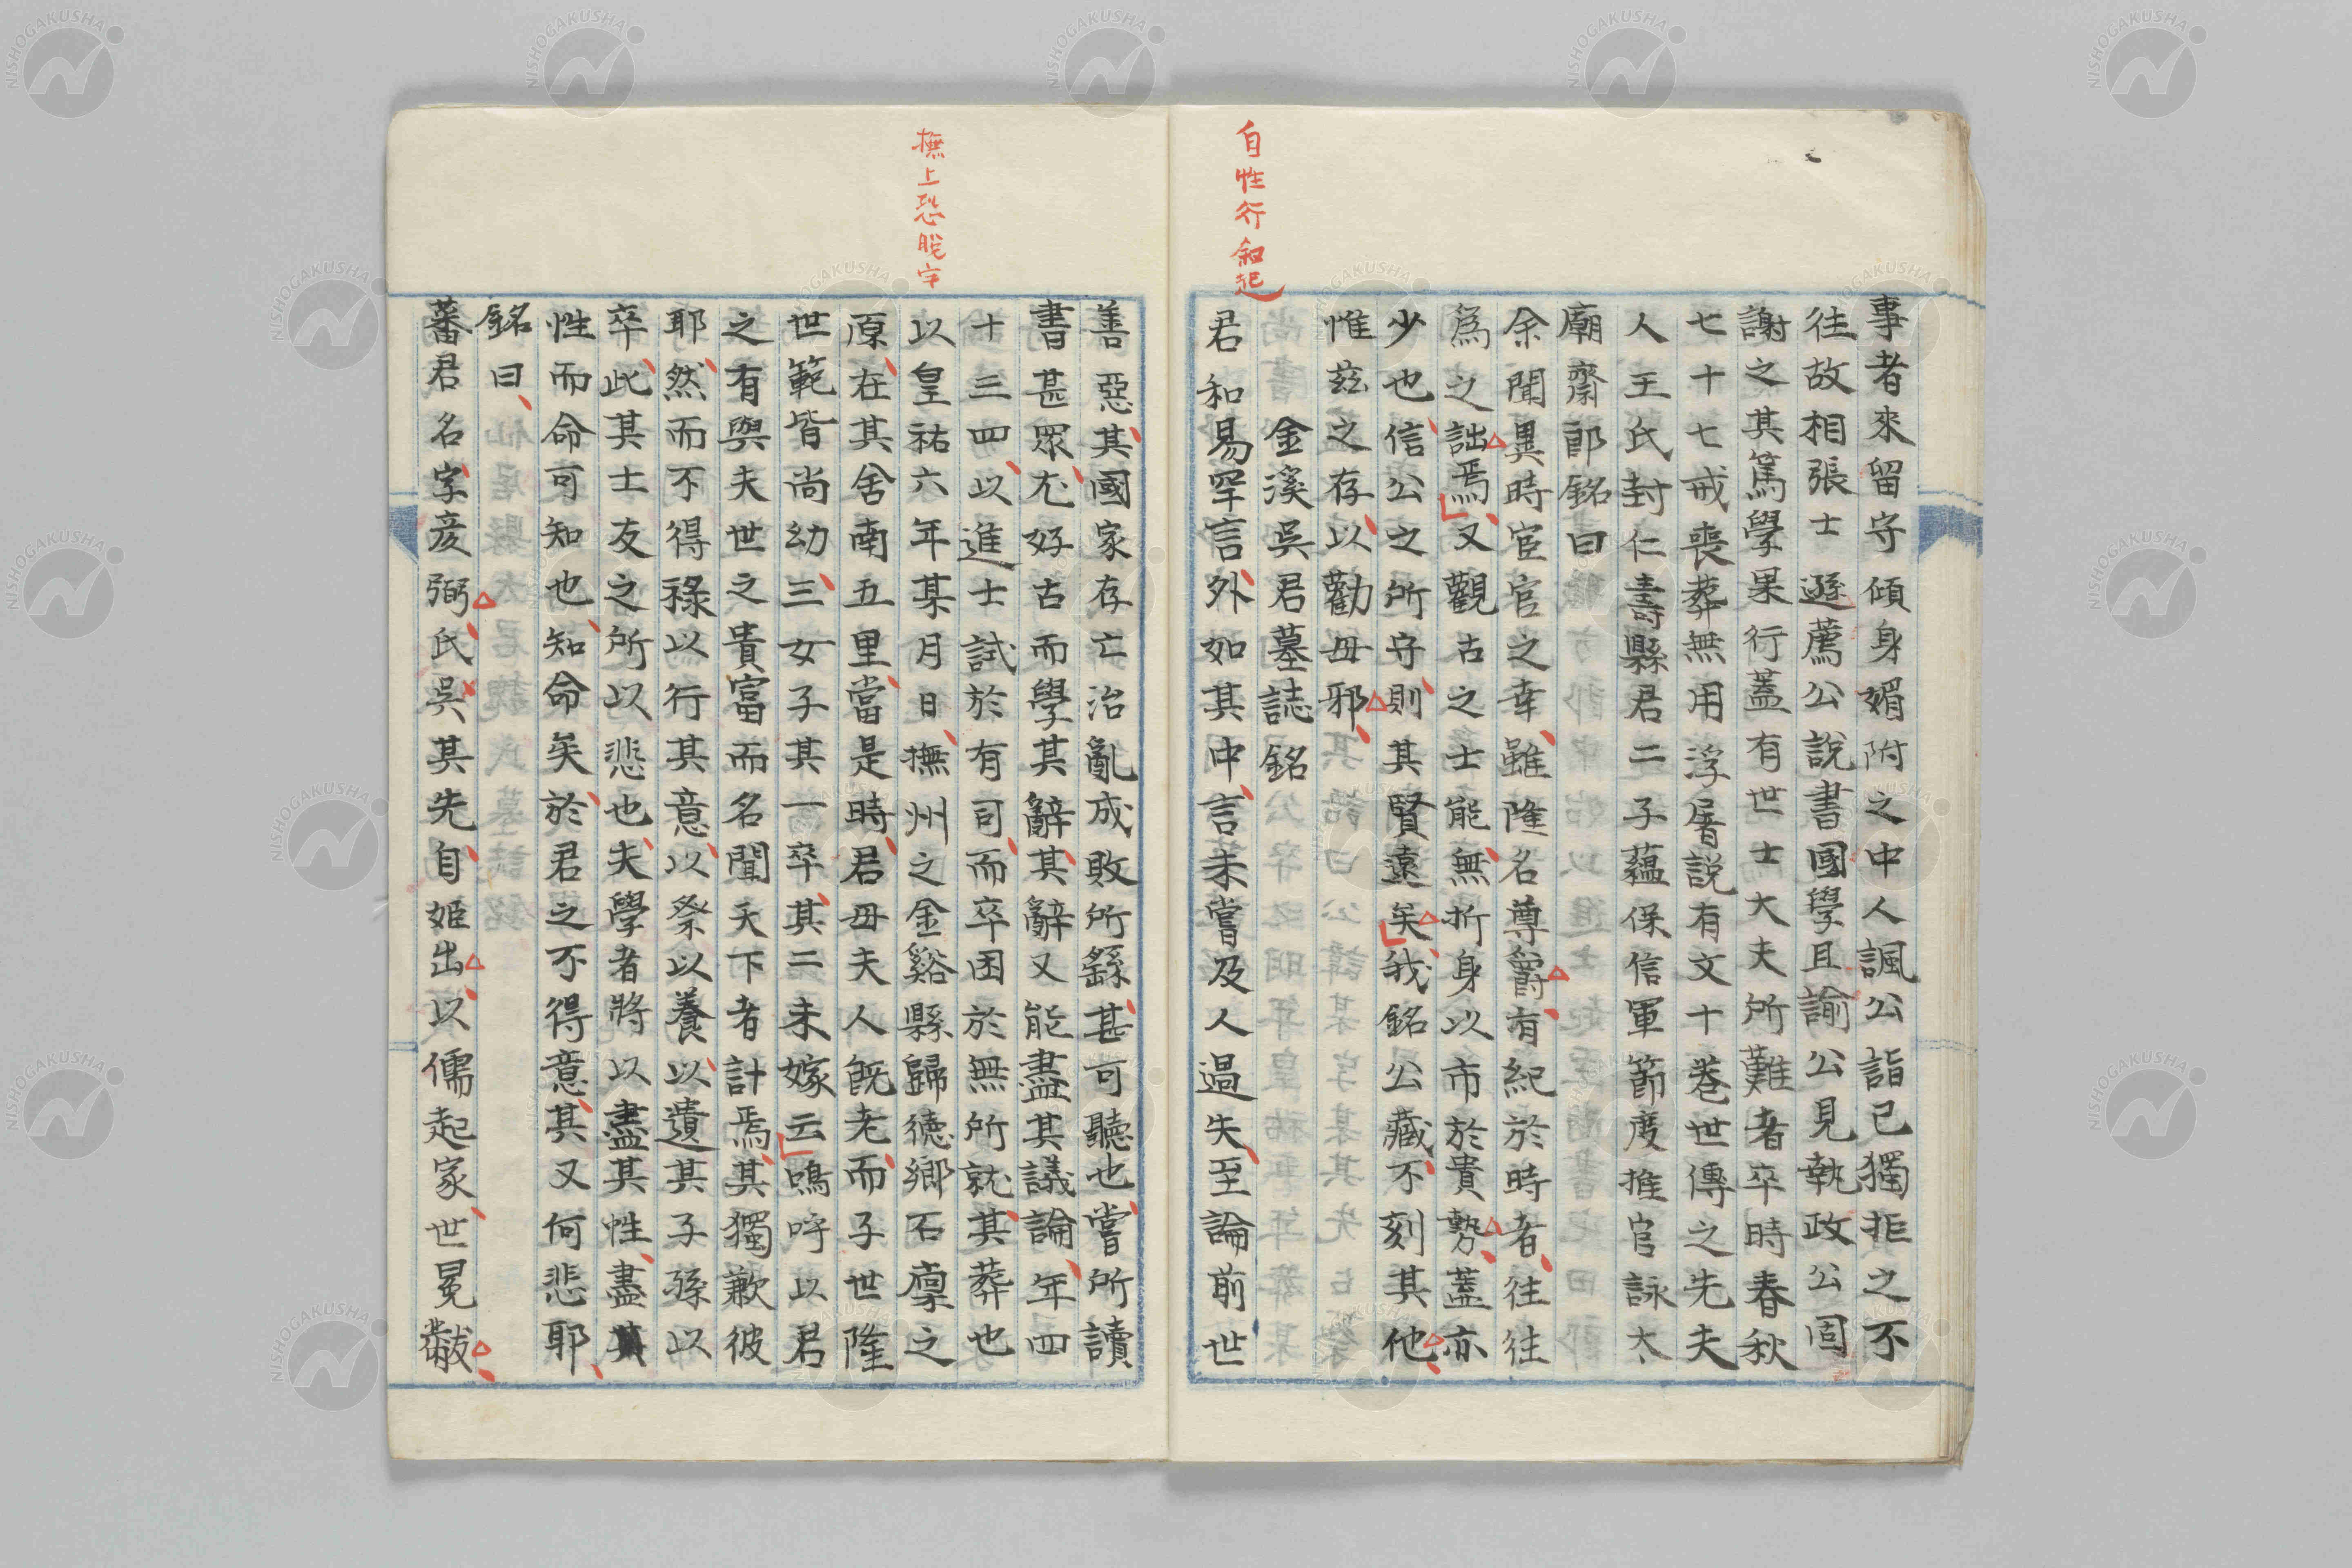 事者來留守傾身媚附之中人諷公詣已獨拒之不
往故相張士遜薦公說書國學且諭公見執政公固
謝之其篤學果行蓋有世士大夫所難者卒時春秋
七十七戒喪葬無用浮屠説有文十卷世傳之先夫
人王氏封仁壽縣君二子蘊保信軍節度推官詠太
廟齋郎銘曰
余聞異時宦官之幸雖隆名尊爵有紀於時者往往
爲之詘焉又觀古之士能無折身以市於貴勢蓋亦
少也信公之所守則其賢遠矣我銘公藏不刻其他
惟茲之存以勸毋邪
金溪吳君墓誌銘
自性行叙起
君和易罕言外如其中言未嘗及人過失至論前世
善惡其國家存亡治亂成敗所繇甚可聽也嘗所讀
書甚眾尤好古而學其辭其辭又能盡其議論年四
十三四以進士試於有司而卒困於無所就其葬也
撫上恐脫字
以皇祐六年某月日撫州之金谿縣歸德鄉石廩之
原在其舍南五里當是時君母夫人既老而子世隆
世範皆尚幼三女子其一卒其二未嫁云嗚呼以君
之有與夫世之貴富而名聞天下者計焉其獨歉彼
耶然而不得祿以行其意以祭以養以遺其子孫以
卒此其士友之所以悲也夫學者將以盡其性盡其
性而命可知也知命矣於君之不得意其又何悲耶
銘曰
蕃君名字彥弼氏吳其先自姬出以儒起家世冕黻
NISHOGAKUSHA